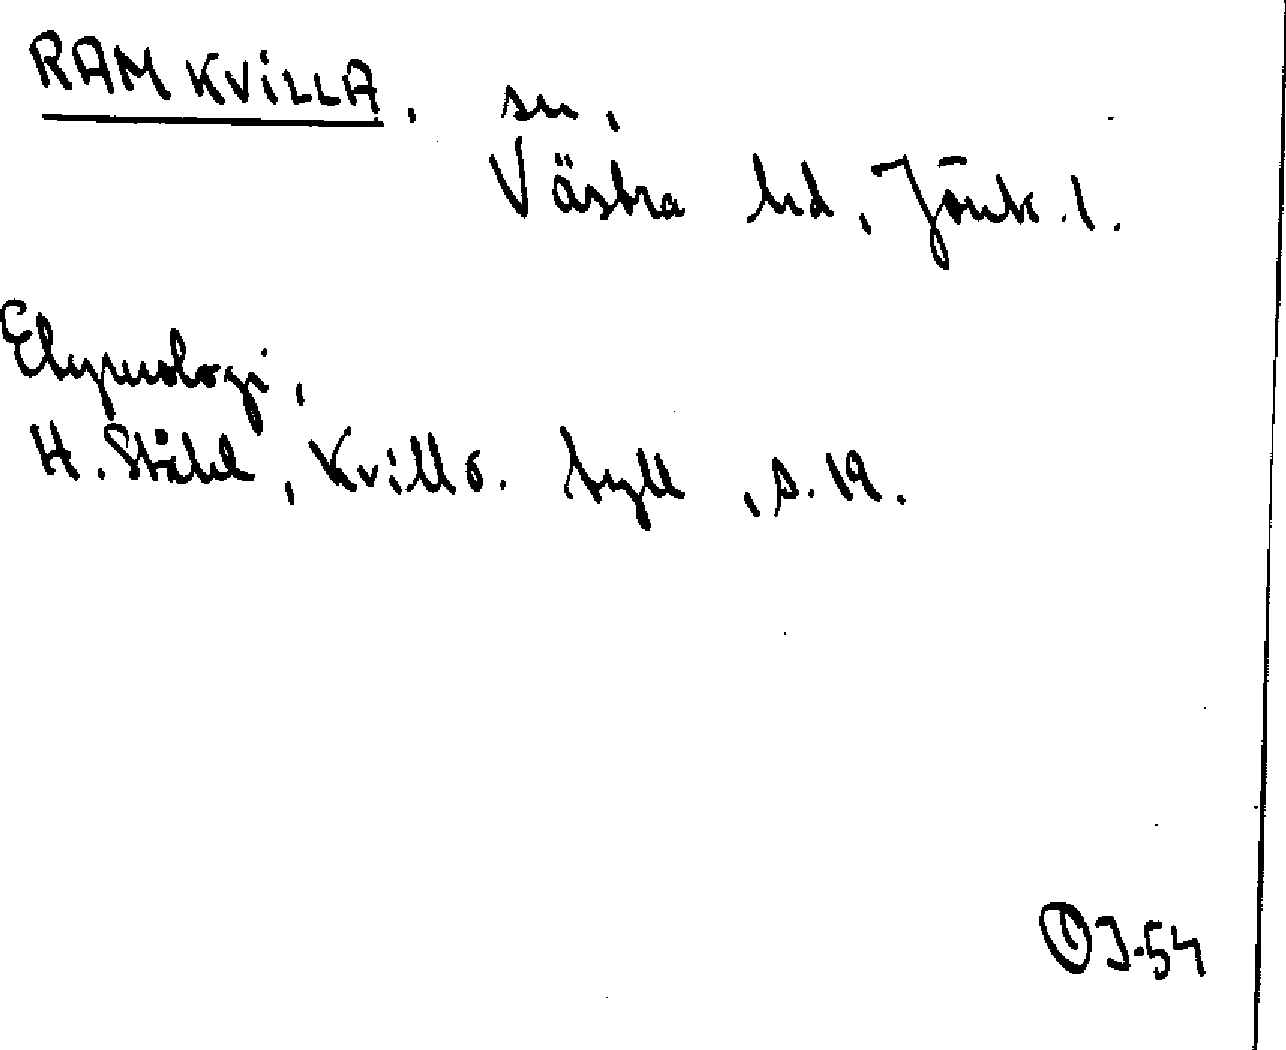 RAMKVILLA, sn,
Västra hd, Jönk.l.
Etymologi,
H. Ståhl, Kvill o. tyll, s. 19.
J-54